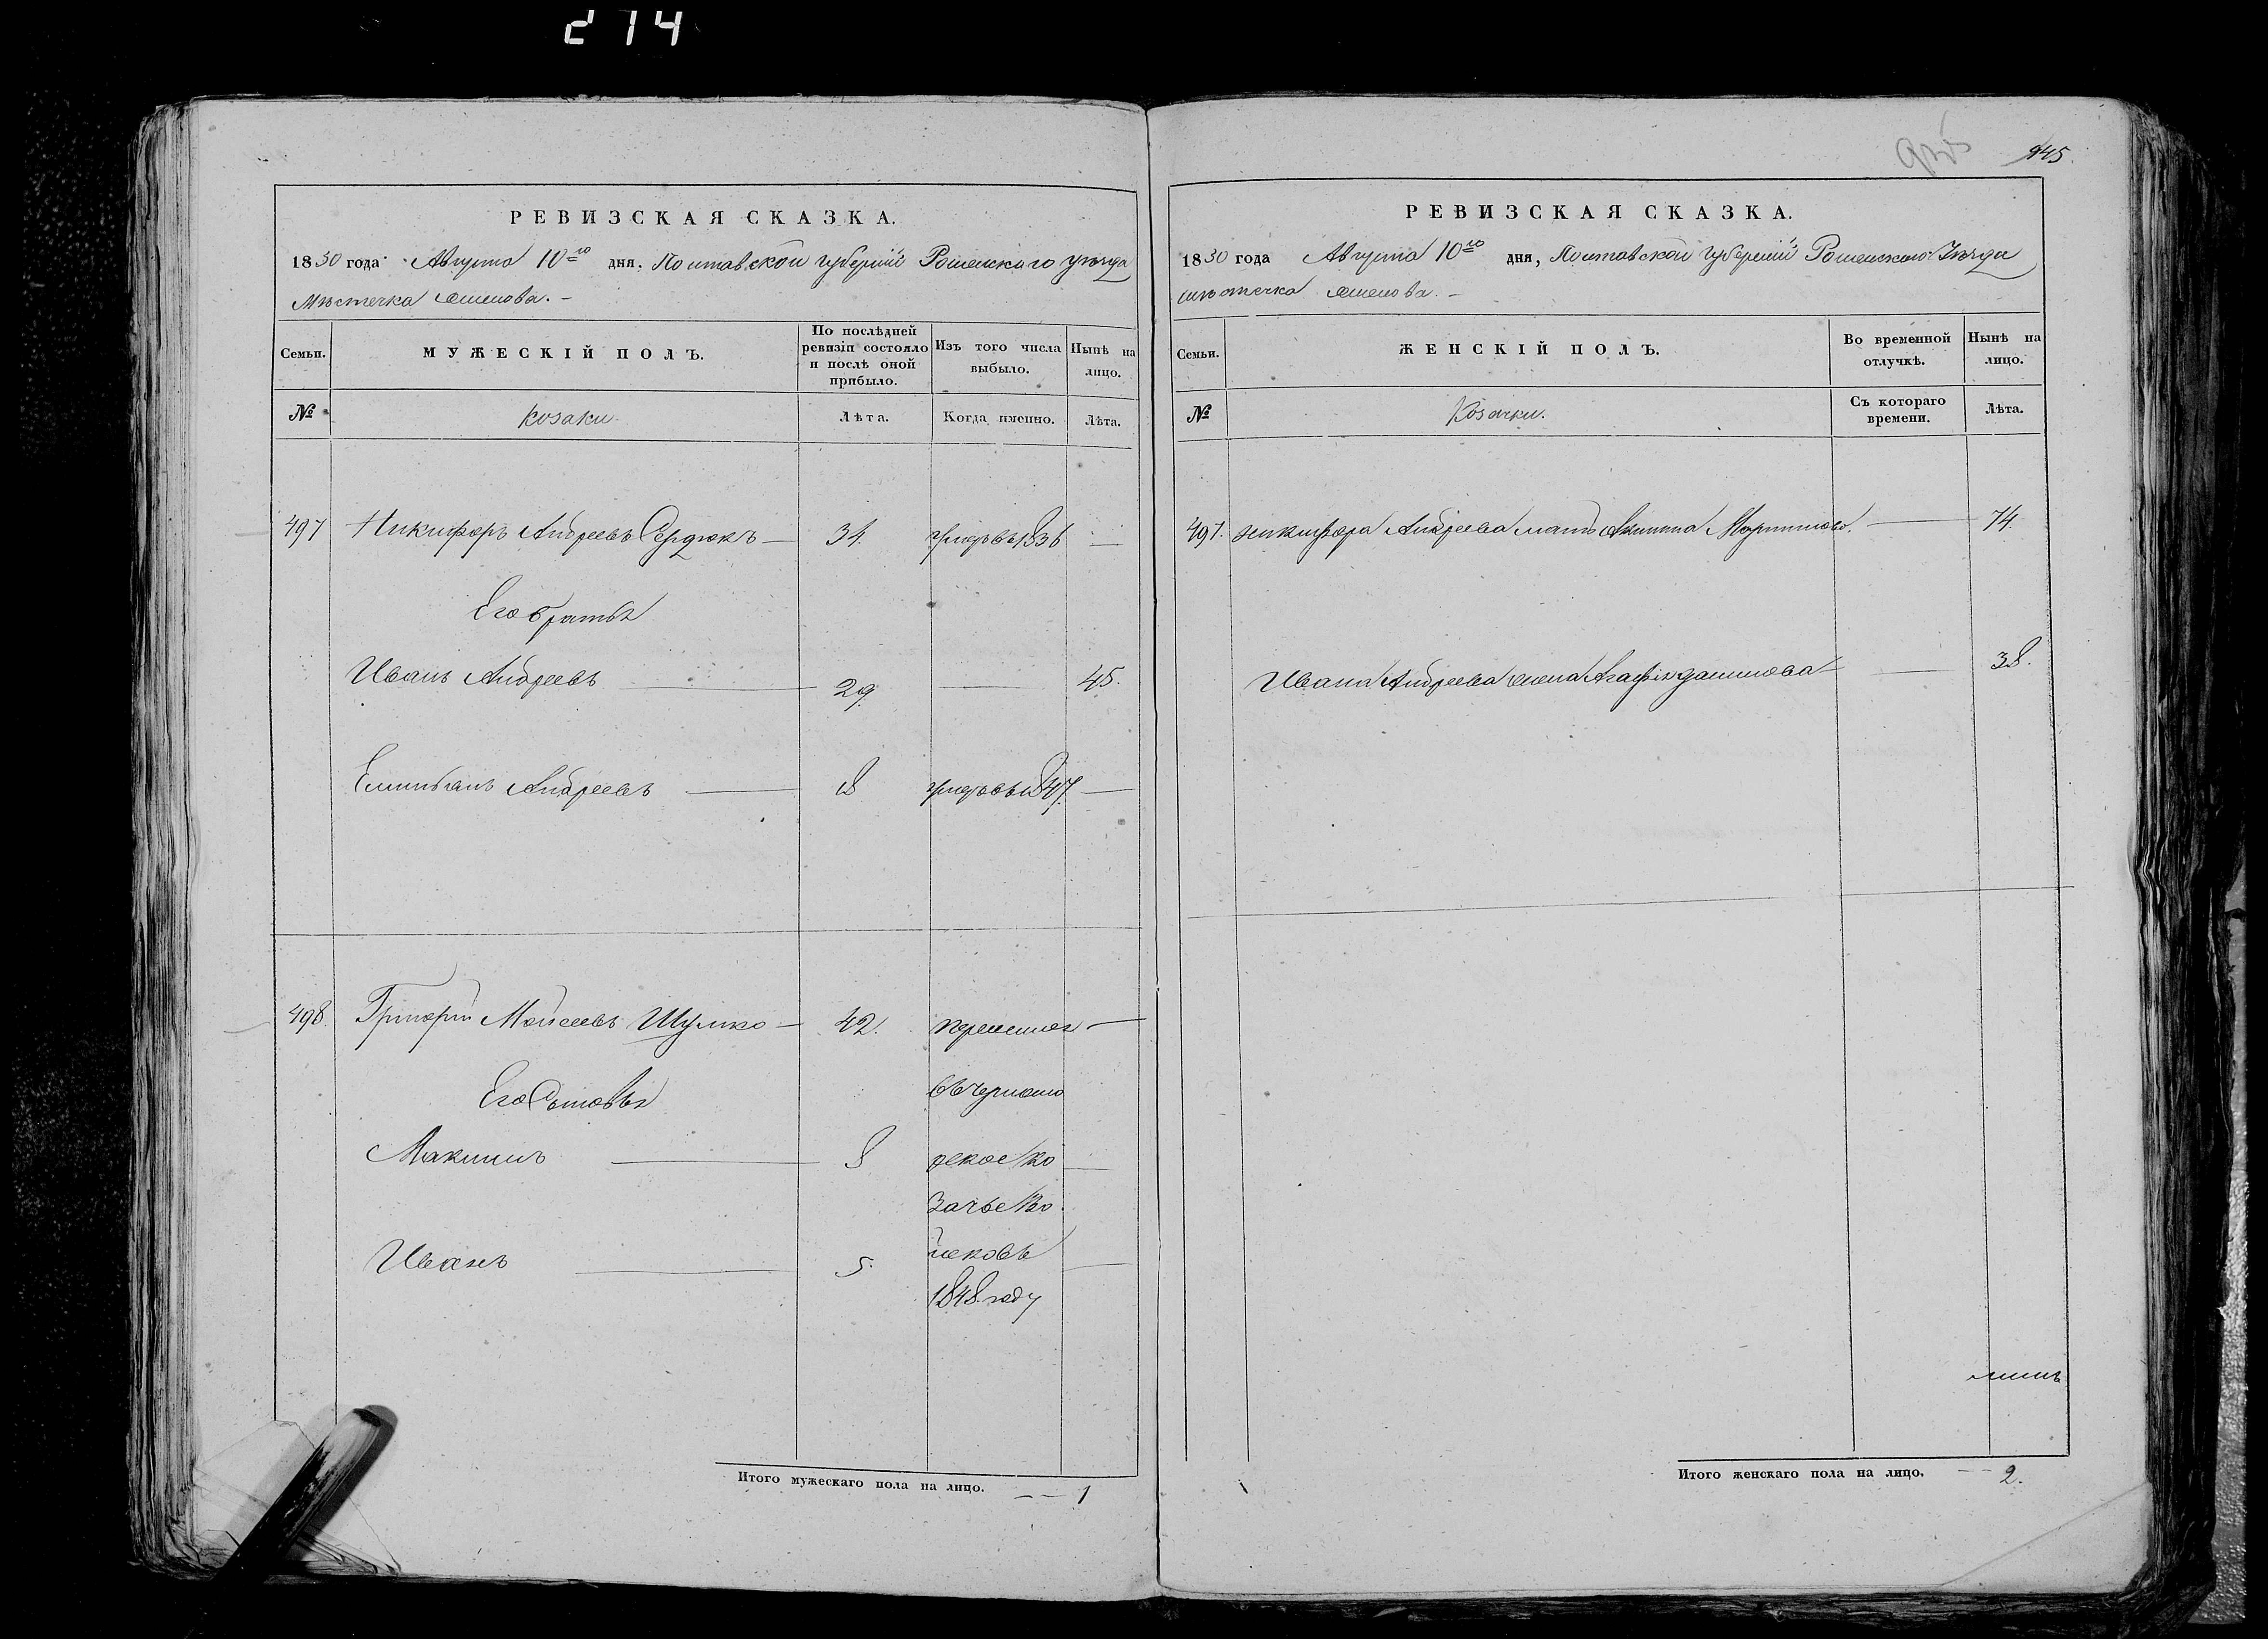 214
945
РЕВИЗСКАЯ СКАЗКА.
1850 года Августа 10го дня, Полтавской губерніи Роменскаго уѣзда
Мѣстечка
Семьи.
МУЖЕСКІЙ ПОЛЪ.
По послѣдней ревизіи состояло и послѣ оной прибыло.
Изъ того числа выбыло.
Нынѣ на лицо.
№
Козаки.
Лѣта.
Когда именно.
Лѣта.
497 Никифоръ Андреевъ Сердюкъ — 34. умеръ въ 1836 —
Его братья
Иванъ Андреевъ — 29. — 45.
Емильянъ Андреевъ — 18 умеръ въ 1847. —
498. Григорій Мойсеевъ Шулико — 42. переселился —
Его Сыновья
въ Черномо
Максимъ — 8 рское ко —
зачье Во
Иванъ — 5. йско въ —
1848. году
Итого мужескаго пола на лицо. — — 1
РЕВИЗСКАЯ СКАЗКА.
1850 года Августа 10го дня, Полтавской губерніи Роменскаго Уѣзда
мѣстечка
Семьи.
ЖЕНСКІЙ ПОЛЪ.
Во временной отлучкѣ.
Нынѣ на лицо.
№
Козачки.
Съ котораго времени.
Лѣта.
497. Никифора Андреева мать — 74.
Ивана Андреева жена Агафія Данилова — 38.
Итого женскаго пола на лицо. — — 2.